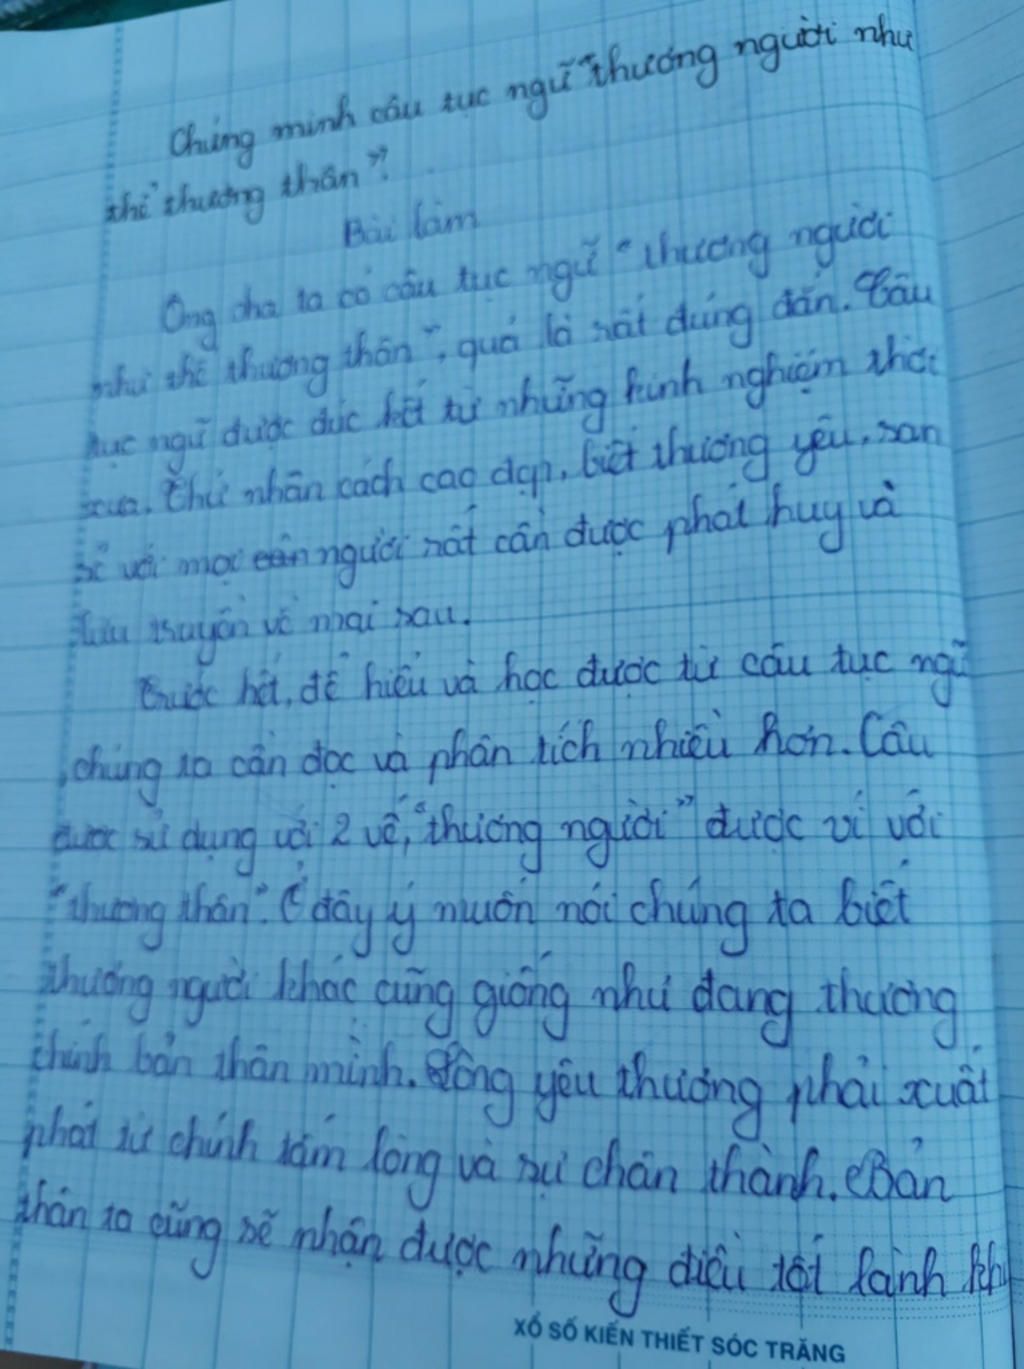 Chứng minh câu tục ngữ "thương người như
thể thương thân".
Bài làm
Ông cha ta có câu tục ngữ "thương người
như thể thương thân", quả là rất đúng đắn. Câu
tục ngữ được đúc kết từ những kinh nghiệm thời
xưa. Thứ nhân cách cao đẹp, biết thương yêu, san
sẻ với mọi người rất cần được phát huy và
lưu truyền về mai sau.
Trước hết, để hiểu và học được từ câu tục ngữ
, chúng ta cần đọc và phân tích nhiều hơn. Câu
được sử dụng với 2 vế, "thương người" được ví với
"thương thân". Ở đây ý muốn nói chúng ta biết
thương người khác cũng giống như đang thương
chính bản thân mình. Lòng yêu thương phải xuất
phát từ chính tấm lòng và sự chân thành. Bản
thân ta cũng sẽ nhận được những điều tốt lành khi
XỔ SỐ KIẾN THIẾT SÓC TRĂNG